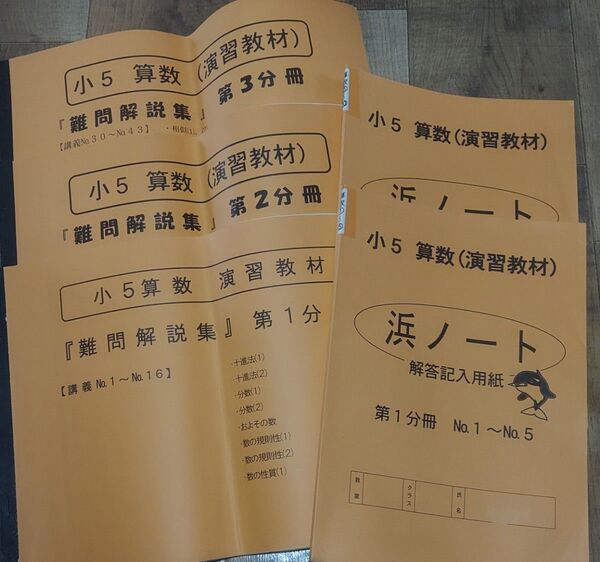 小5 算数(演習教材)
『難問解説集』 第3分冊
【講義No.30～No.43】 ・相似(1),
小5 算数(演習教材)
『難問解説集』 第2分冊
小5算数 演習教材
『難問解説集』 第1分
【講義 No.1～No.16】
・十進法(1)
・十進法(2)
・分数(1)
・分数(2)
・およその数
・数の規則性(1)
・数の規則性(2)
・数の性質(1)
小5 算数(演習教材)
浜ノート
小5 算数(演習教材)
浜ノート
解答記入用紙
第1分冊 No.1～No.5
教室
クラス
氏名